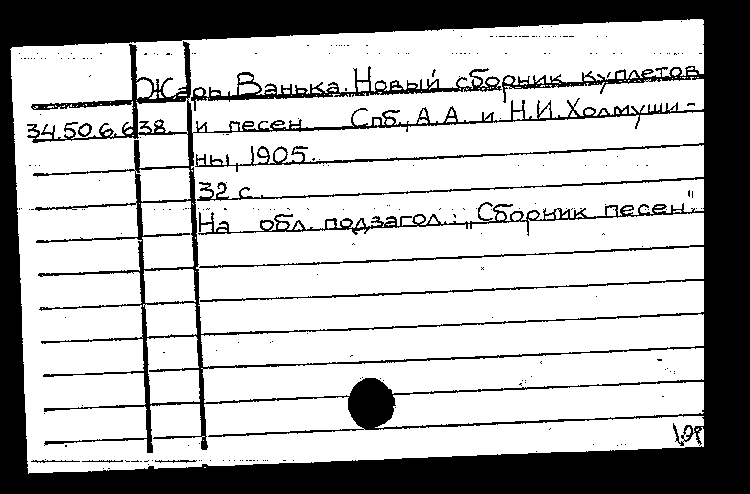 Жарь, Ванька. Новый сборник куплетов
34.50.6.638. и песен. Спб., А.А. и Н.И. Холмуши-
ны, 1905.
32 с.
На обл. подзагол.: „Сборник песен".